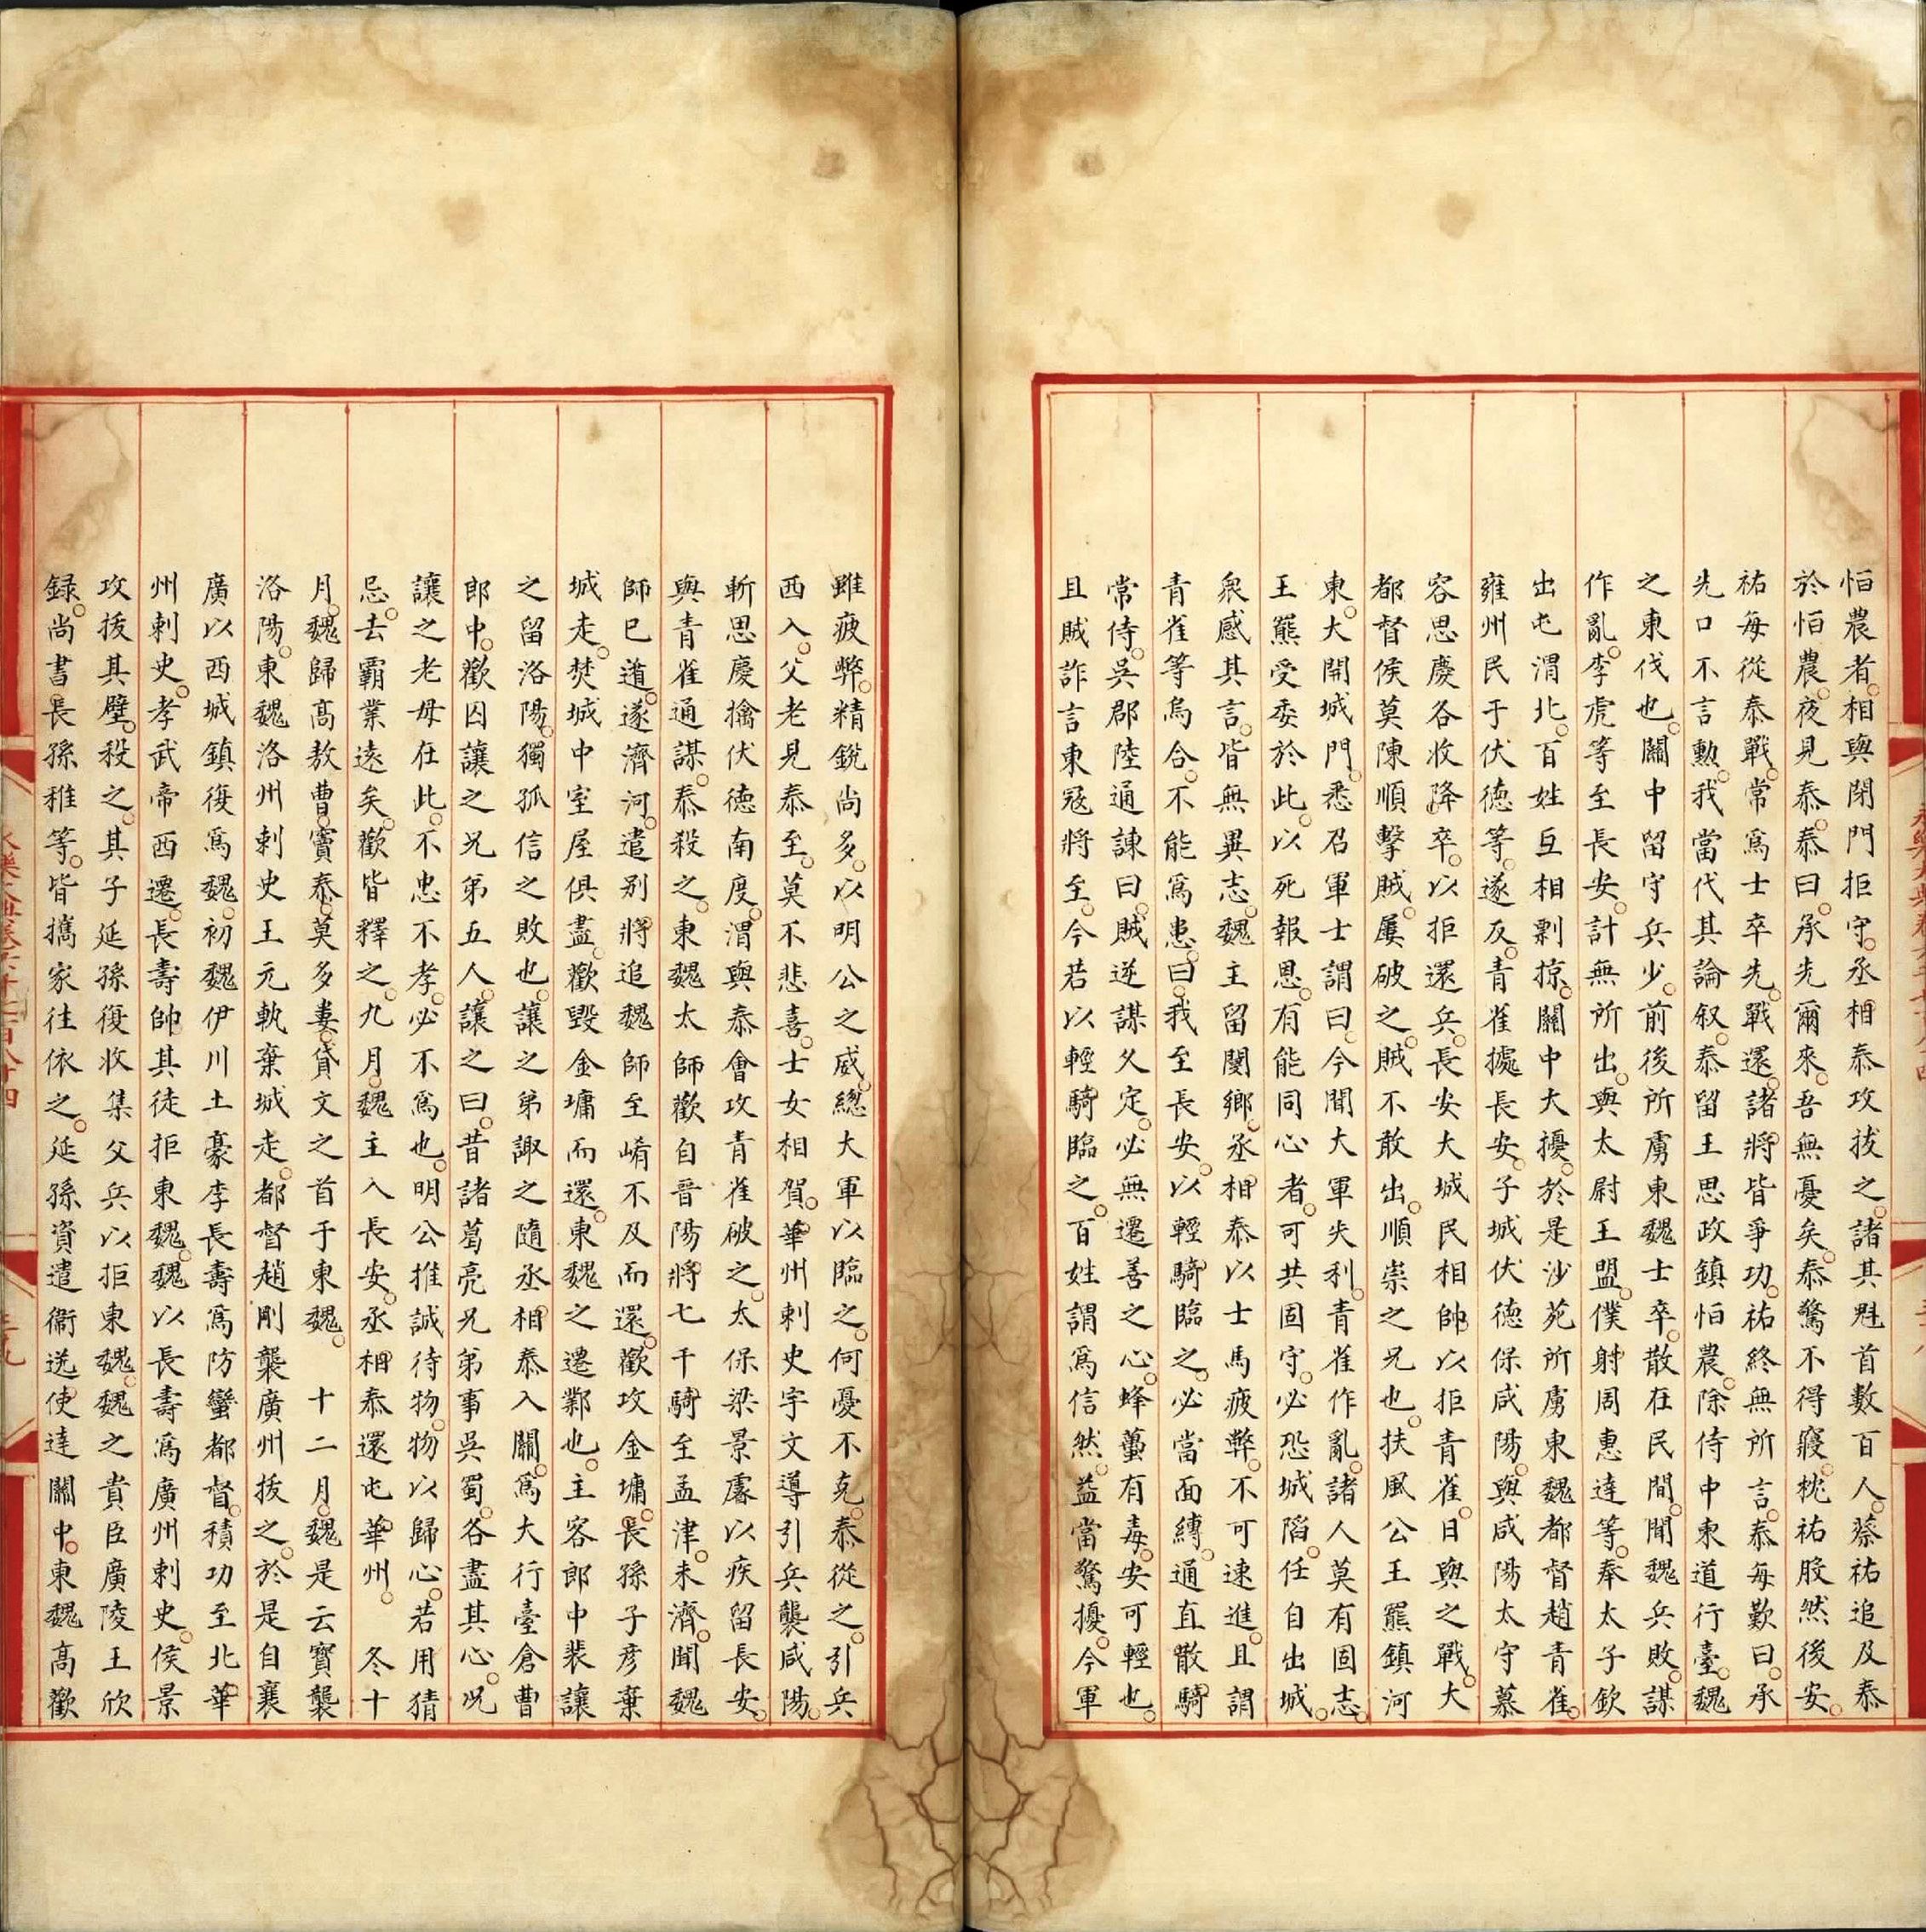 怕農者相與閉門拒守丞相泰攻拔之諸其魁首數百人蔡祐追及泰
於怕農夜見泰泰曰承先爾來吾無憂矣泰驚不得寢枕祐股然後安
祐每從泰戰常爲士卒先戰還諸將皆爭功祐終無所言泰每歎曰承
先口不言勲我當代其論叙泰留王思政鎮怕農除侍中東道行臺魏
之東伐也關中留守兵少前後所虜東魏士卒散在民間聞魏兵敗謀
作亂李虎等至長安計無所出與太尉王盟僕射周惠達等奉太子欽
出屯渭北百姓亙相剽掠關中大擾於是沙苑所虜東魏都督趙青雀
雍州民于伏德等遂反青雀據長安子城伏德保咸陽與咸陽太守慕
容思慶各收降卒以拒還兵長安大城民相帥以拒青雀日與之戰大
都督侯莫陳順擊賊屢破之賊不敢出順崇之兄也扶風公王羆鎮河
東大開城門悉召軍士謂曰今聞大軍失利青雀作亂諸人莫有固志
王羆受委於此以死報恩有能同心者可共固守必恐城陷任自出城
衆感其言皆無異志魏主留閿鄉丞相泰以士馬疲弊不可速進且謂
青雀等烏合不能爲患曰我至長安以輕騎臨之必當面縛通直散騎
常侍吳郡陸通諫曰賊逆謀久定必無遷善之心蜂蠆有毒安可輕也
且賊詐言東冦將至今若以輕騎臨之百姓謂爲信然益當驚擾今軍
雖疲弊精銳尚多以明公之威緫大軍以臨之何憂不克泰從之引兵
西入父老見泰至莫不悲喜士女相賀華州刺史宇文導引兵襲咸陽
斬思慶擒伏德南度渭與泰會攻青雀破之太保梁景睿以疾留長安
與青雀通謀泰殺之東魏太師歡自晉陽將七千騎至孟津未濟聞魏
師已遁遂濟河遣别將追魏師至崤不及而還歡攻金墉長孫子彦棄
城走焚城中室屋俱盡歡毀金墉而還東魏之遷鄴也主客郎中裴讓
之留洛陽獨孤信之敗也讓之弟諏之隨丞相泰入關爲大行臺倉曹
郎中歡囚讓之兄弟五人讓之曰昔諸葛亮兄弟事吳蜀各盡其心况
讓之老母在此不忠不孝必不爲也明公推誠待物物以歸心若用猜
忌去霸業遠矣歡皆釋之九月魏主入長安丞相泰還屯華州　冬十
月魏歸高敖曹竇泰莫多婁貸文之首于東魏　十二月魏是云寶襲
洛陽東魏洛州刺史王元軌棄城走都督趙剛襲廣州拔之於是自襄
廣以西城鎮復爲魏初魏伊川土豪李長壽爲防蠻都督積功至北華
州刺史孝武帝西遷長壽帥其徒拒東魏魏以長壽爲廣州刺史侯景
攻拔其壁殺之其子延孫復收集父兵以拒東魏魏之貴臣廣陵王欣
録尚書長孫稚等皆攜家往依之延孫資遣衞送使達關中東魏高歡